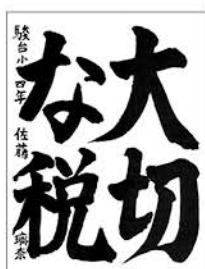 大切
な税
駿台小 四年 佐藤 璃奈